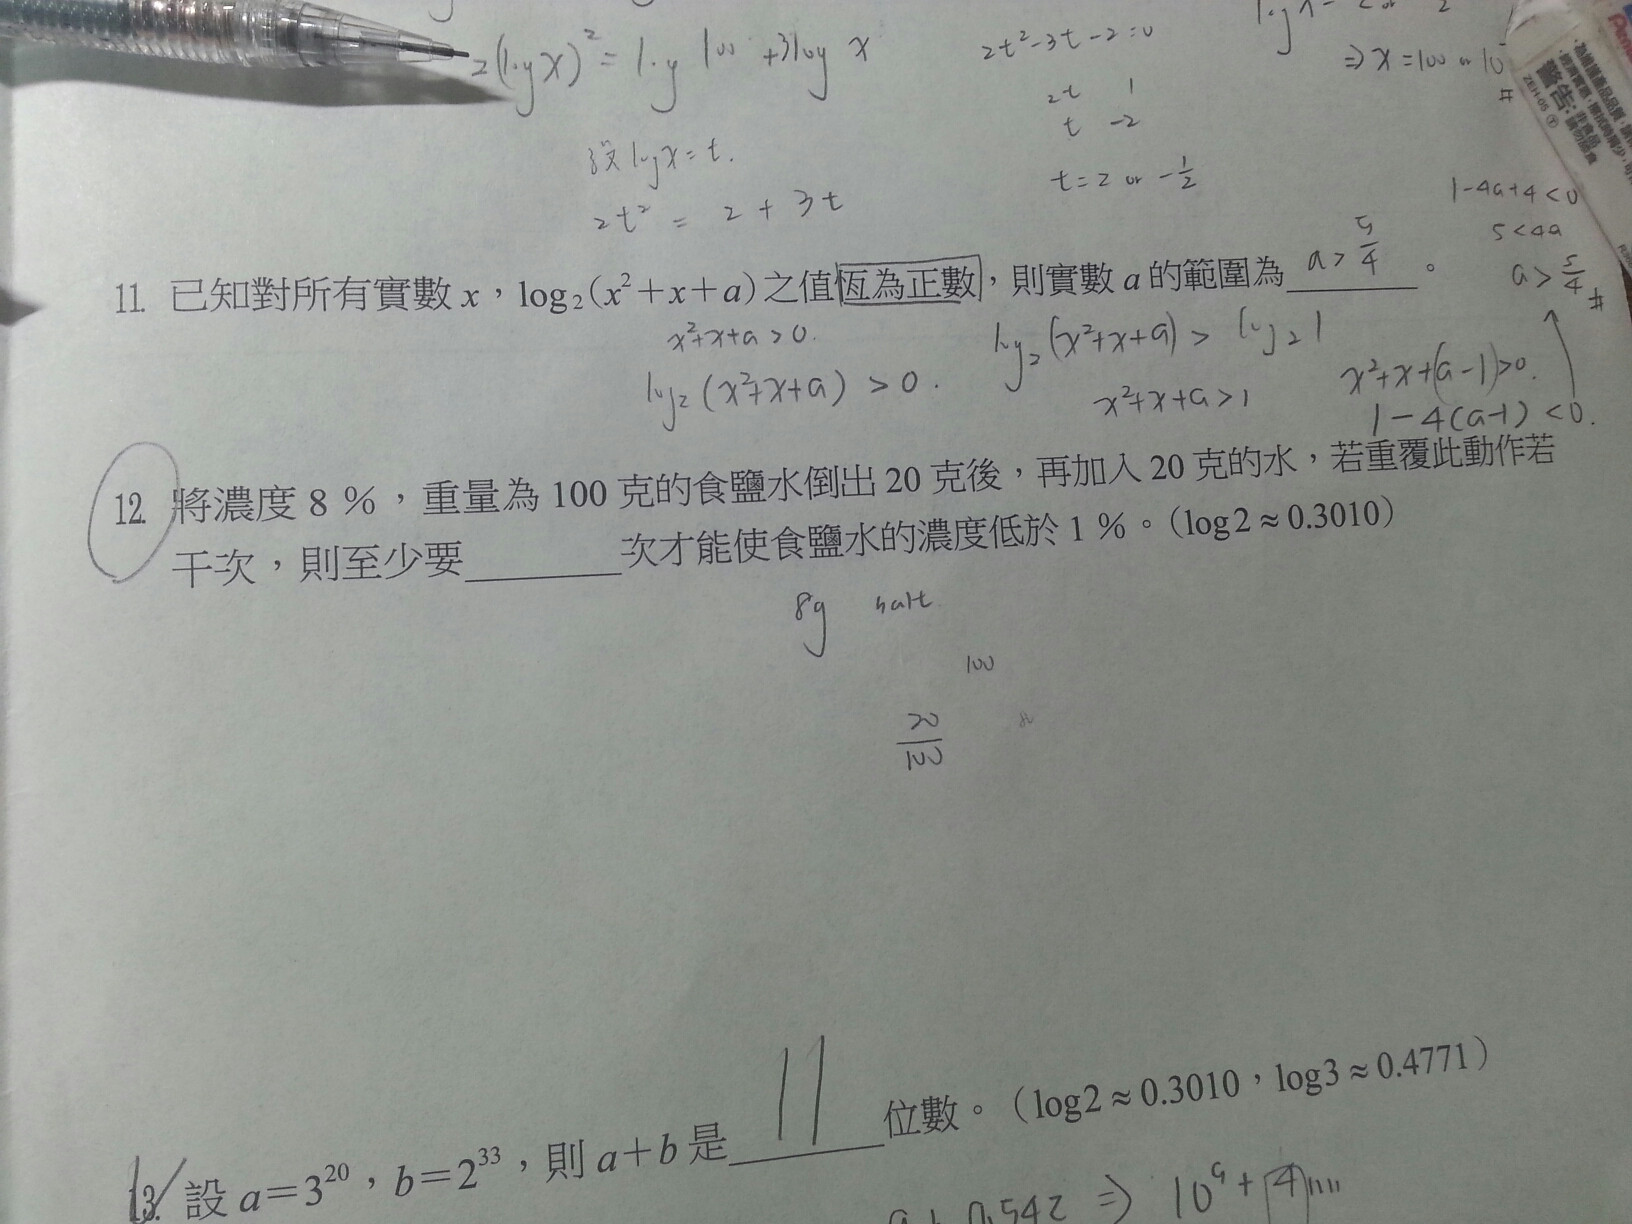 2(log x)² = log 100 + 3log x
2t² - 3t - 2 = 0
⇒ x = 100 or 10
#
2t 1
t -2
設 log x = t.
t = 2 or -1/2
2t² = 2 + 3t
警告:
ZEH-05
1-4a+4<0
5<4a
a > 5/4 #
11. 已知對所有實數 x，log₂(x²+x+a)之值恆為正數，則實數 a 的範圍為 a > 5/4 。
x²+x+a > 0.
log₂(x²+x+a) > log₂ 1
log₂(x²+x+a) > 0.
x²+x+a > 1
x²+x+(a-1)>0.
1-4(a-1)<0.
12. 將濃度 8 %，重量為 100 克的食鹽水倒出 20 克後，再加入 20 克的水，若重覆此動作若
干次，則至少要________次才能使食鹽水的濃度低於 1 %。(log2≈0.3010)
8g salt
100
20/100
13. 設 a=3²⁰，b=2³³，則 a+b 是 11 位數。(log2≈0.3010，log3≈0.4771)
0.542 ⇒ 10⁹ + 4